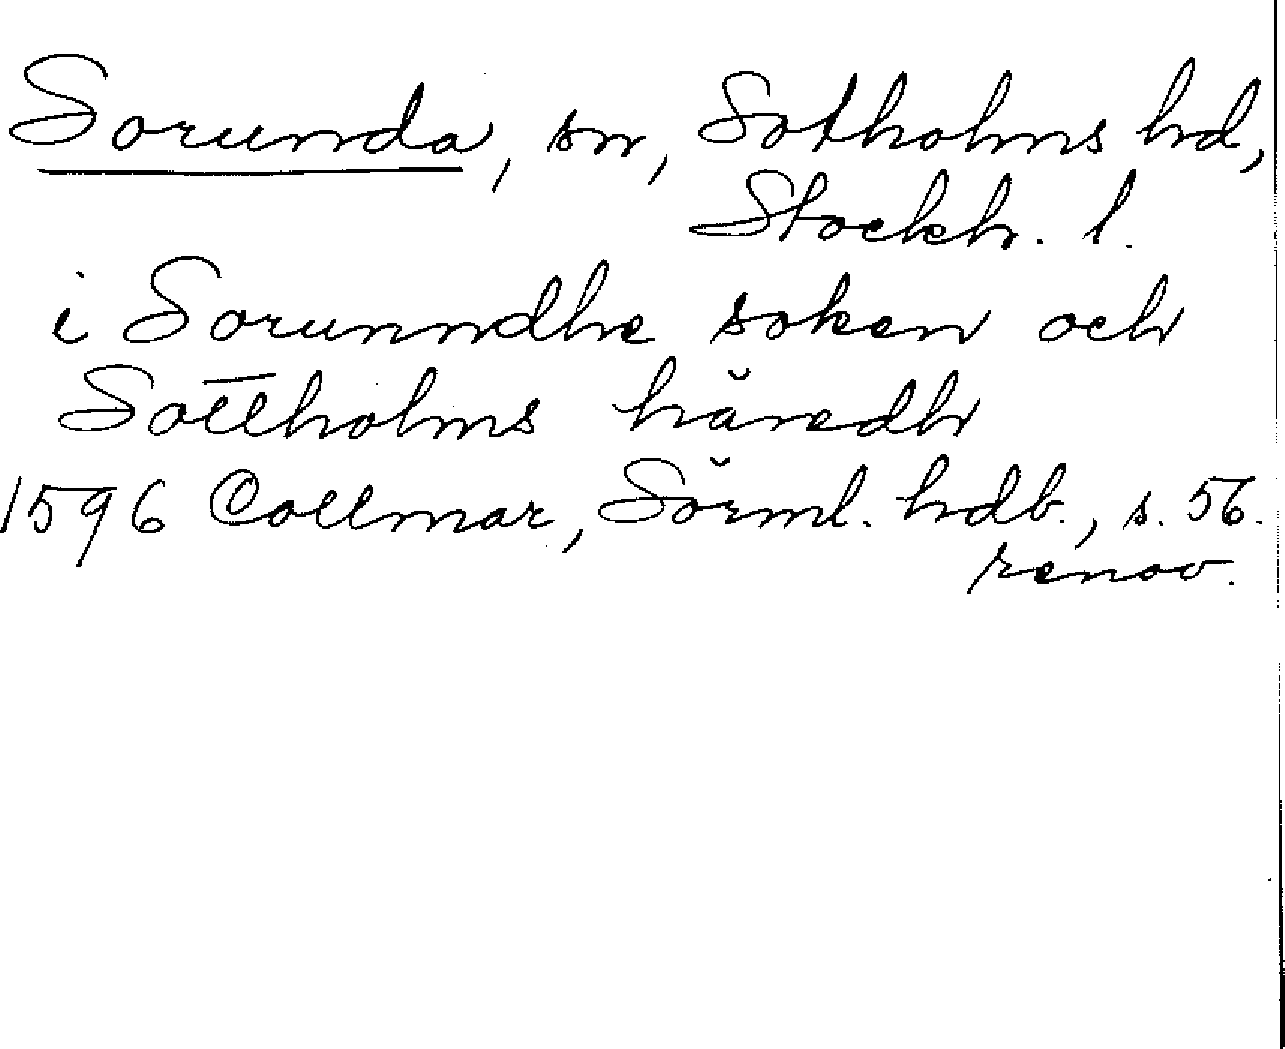 Sorunda, sn, Sotholms hd,
Stockh. l.
i Sorunndhe soken och
Sottholms häredh
1596 Collmar, Sörml. hdb., s. 56.
renov.